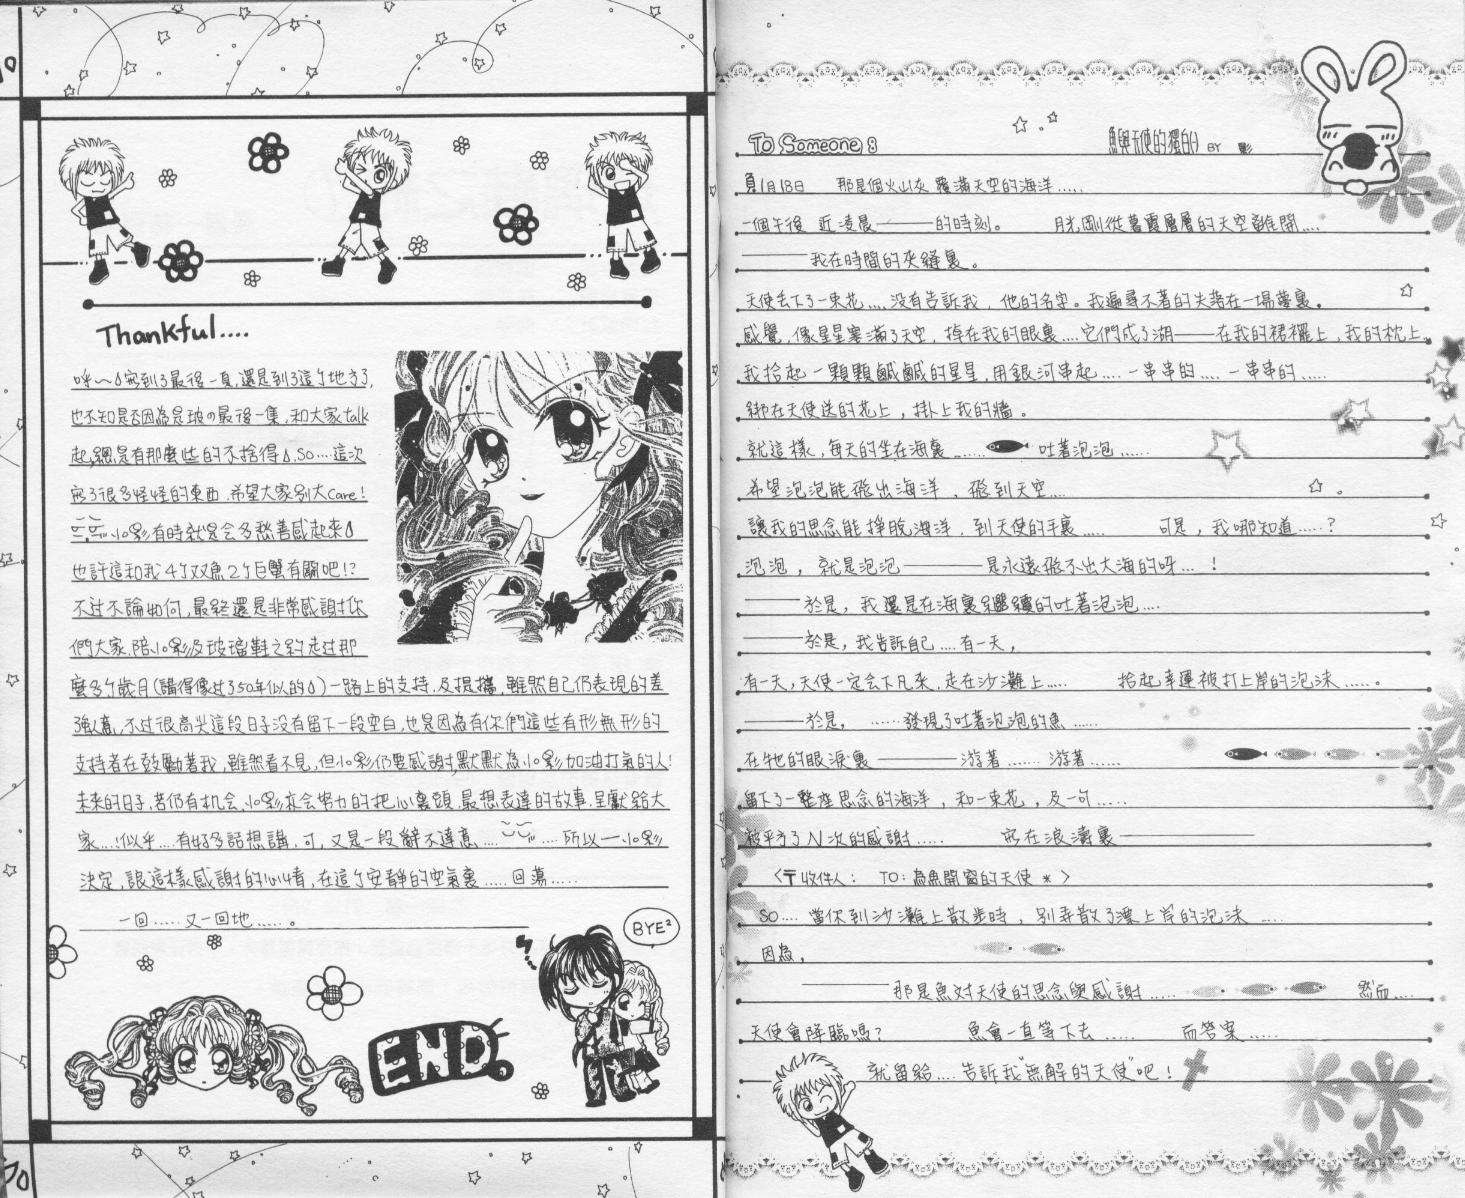 Thankful....
呼～~寫到了最後一頁,還是到了這个地方了,
也不知是否因為是玻の最後一集,和大家talk
起,總是有那麼些的不捨得。So....這次
寫了很多怪怪的東西,希望大家別太Care!
小影有時就是会多愁善感起來
也許這和我4个双魚2个巨蟹有關吧!?
不过不論如何,最終還是非常感謝你
們大家,陪小影及玻璃鞋之約走过那
麼多个歲月(講得像过了50年似的)一路上的支持,及提攜,雖然自己仍表現的差
強人意,不过很高兴這段日子沒有留下一段空白,也是因為有你們這些有形無形的
支持者在鼓勵著我,雖然看不見,但小影仍要感謝,默默為小影加油打氣的人!
未來的日子,若仍有机会,小影亦会努力的把心裏頭,最想表達的故事,呈獻給大
家....!似乎....有好多話想講,可,又是一段辭不達意..... ....所以一小影
決定,讓這樣感謝的心情,在這个安靜的空氣裏.....回蕩.....
一回......又一回地......。
BYE²
END.
To Someone 8
魚與天使的獨白() BY 影
1月18日 那是個火山灰覆滿天空的海洋.....
一個午後 近凌晨———的時刻。 月光,剛從暮靄層層的天空離開....
———我在時間的夾縫裏。
天使丟下了一束花....沒有告訴我,他的名字。我遍尋不著的失落在一場夢裏。
感覺,像星星塞滿了天空,掉在我的眼裏....它們成了湖——在我的裙襬上,我的枕上。
我拾起一顆顆鹹鹹的星星,用銀河串起.....一串串的.....一串串的.....
綁在天使送的花上,掛上我的牆。
就這樣,每天的坐在海裏...... 吐著泡泡......
希望泡泡能飛出海洋,飛到天空....
讓我的思念能掙脫海洋,到天使的手裏..... 可是,我哪知道.....?
泡泡,就是泡泡————是永遠飛不出大海的呀...!
———於是,我還是在海裏繼續的吐著泡泡....
———於是,我告訴自己....有一天,
有一天,天使一定会下凡來,走在沙灘上..... 拾起幸運被打上岸的泡沫.....。
———於是, ......發現了吐著泡泡的魚......
在牠的眼淚裏————游著.......游著......
留下了一整座思念的海洋,和一束花,及一句.....
被平方了N次的感謝..... 寫在浪濤裏——————
〈〒收件人: TO:為魚開窗的天使＊〉
So....當你到沙灘上散步時,別弄散了漂上岸的泡沫.....
因為,
————那是魚对天使的思念與感謝..... 然而....
天使會降臨嗎? 魚會一直等下去...... 而答案.....
就留給....告訴我"無解的天使"吧!